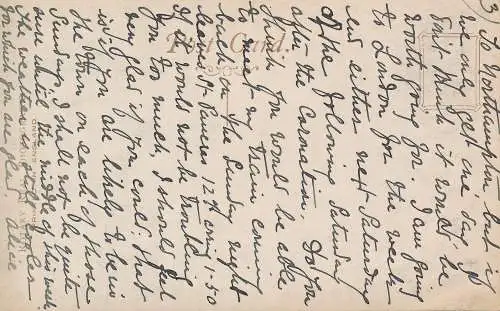 Post Card.
3) To Northampton but if
we only get one day I
don't think it would be
worth going for. I am going
to London for the week
end either next Saturday
or the following Saturday
after the Coronation. Do you
think you would be able
to meet my train coming
back on the Sunday night
leaves St Pancras 12.0 and 1.50
if it would not be troubling
you too much, I should feel
very glad if you could. But
is it you are likely to be in
the town on each of those
Sundays. I shall not be quite
sure until the middle of this week.
The weather is still cooler
for which you are glad. Alice